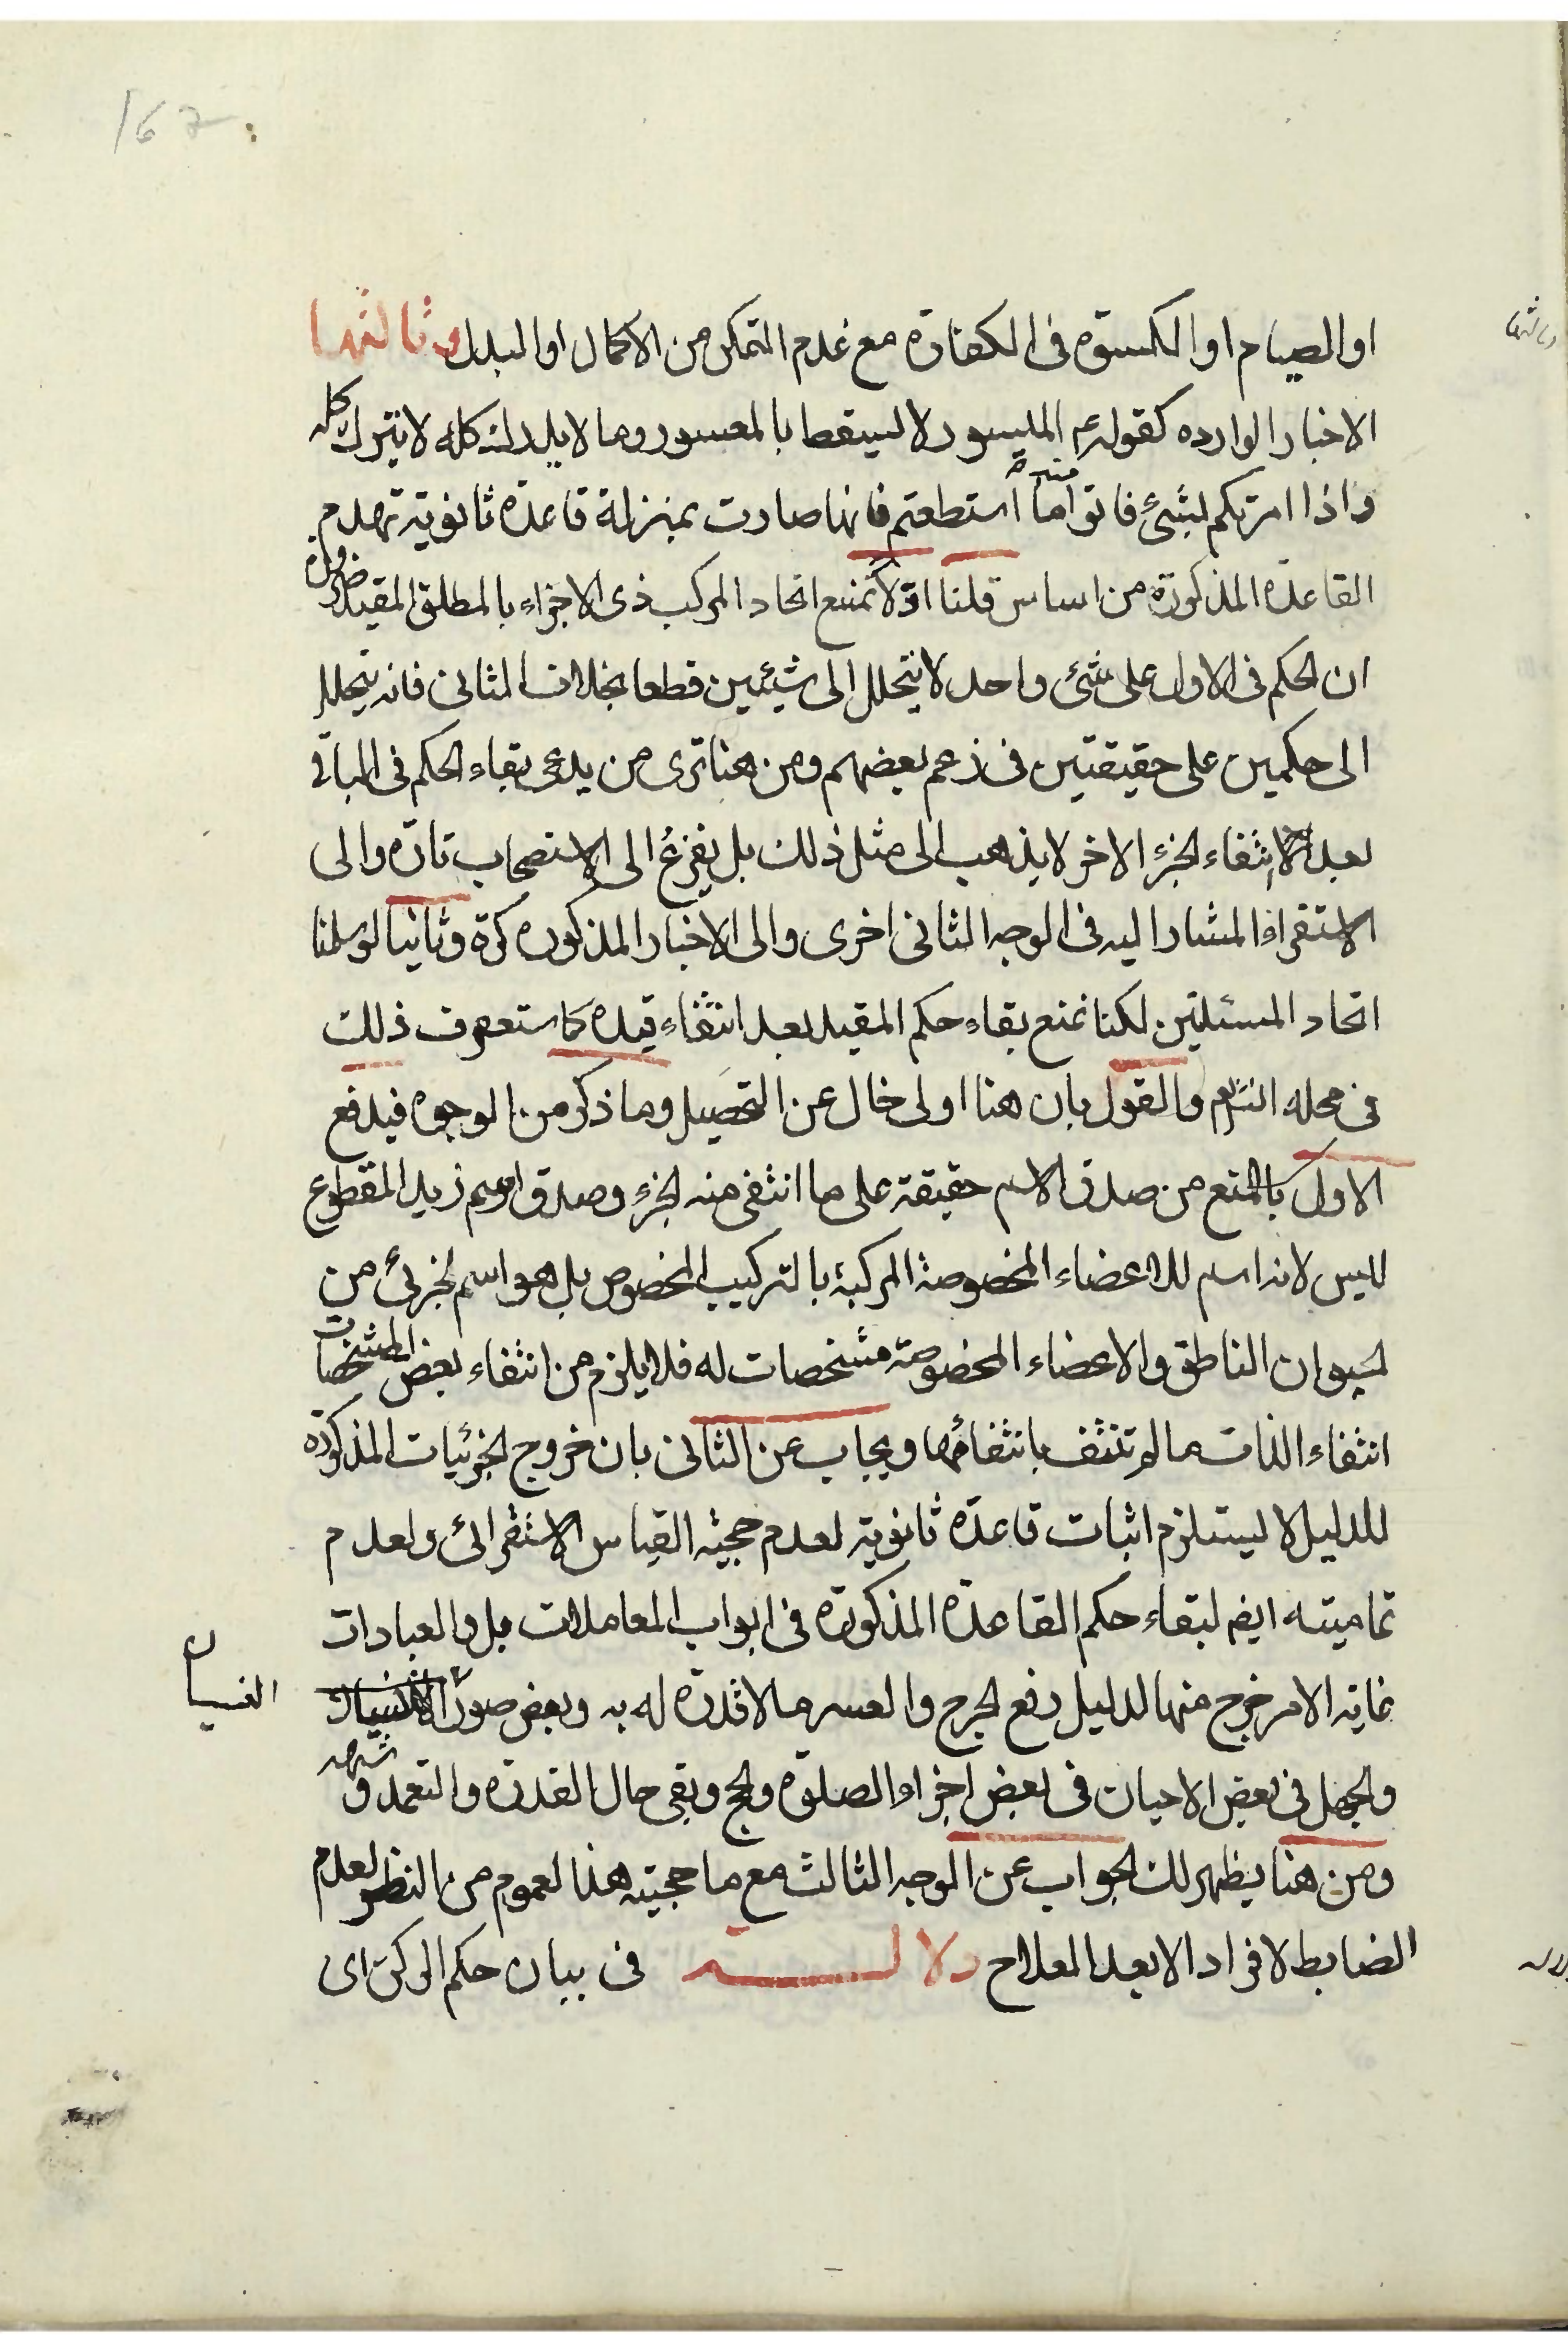 167
او الصيام او الكسوة فى الكفارة مع عدم التمكن من الاكمال او البدل وثالثها
الاخبار الوارده كقولهم الميسور لا يسقط بالمعسور وما لا يدرك كله لا يترك كله
واذا امرتكم بشئ فاتوا منه ما استطعتم فانها صارت بمنزلة قاعدة ثانوية تهدم
القاعدة المذكورة من اساس قلنا اوّلا نمنع اتحاد المركب ذى الاجزاء بالمطلق المقيد ضرورة
ان الحكم فى الاول على شئ واحد لا يتحلل الى شيئين قطعا بخلاف الثانى فانه يتحلل
الى حكمين على حقيقتين فى زعم بعضهم ومن هنا ترى من يدعى بقاء الحكم فى الباقى
بعد انتفاء الجزء الاخر لا يذهب الى مثل ذلك بل يفزع الى الاستصحاب تارة والى
الاستقراء المشار اليه فى الوجه الثانى اخرى والى الاخبار المذكوره كرة وثانيا لو سلمنا
اتحاد المسئلتين لكنا نمنع بقاء حكم المقيد بعد انتفاء قيده كما ستعرف ذلك
فى محله انشاء والقول بان هنا اولى خال عن التحصيل وما ذكر من الوجوه فيدفع
الاول بالمنع من صدق الاسم حقيقة على ما انتفى منه الجزء وصدق اسم زيد المقطوع
ليس لانه اسم للاعضاء المخصوصة المركبة بالتركيب المخصوص بل هو اسم لجزئى من
الحيوان الناطق والاعضاء المخصوصة مشخصات له فلا يلزم من انتفاء بعض المشخصات
انتفاء الذات ما لم تنتف بانتفائها ويجاب عن الثانى بان خروج الجزئيات المذكورة
للدليل لا يستلزم اثبات قاعدة ثانوية لعدم حجيّة القياس الاستقرائى ولعدم
تماميته ايضا لبقاء حكم القاعدة المذكورة فى ابواب المعاملات بل والعبادات
غاية الامر خرج منها لدليل رفع الحرج والعسر ما لا قدرة له به وبعض صور
النسيان
والجهل فى بعض الاحيان فى بعض اجزاء الصلوة والحج وبقى حال القدرة والتعمد و
ومن هنا يظهر لك الجواب عن الوجه الثالث مع ما حجيته هذا لعموم من النظر لعدم
الضابط لافراد الا بعد العلاج دلالـــة فى بيان حكم الركن اى